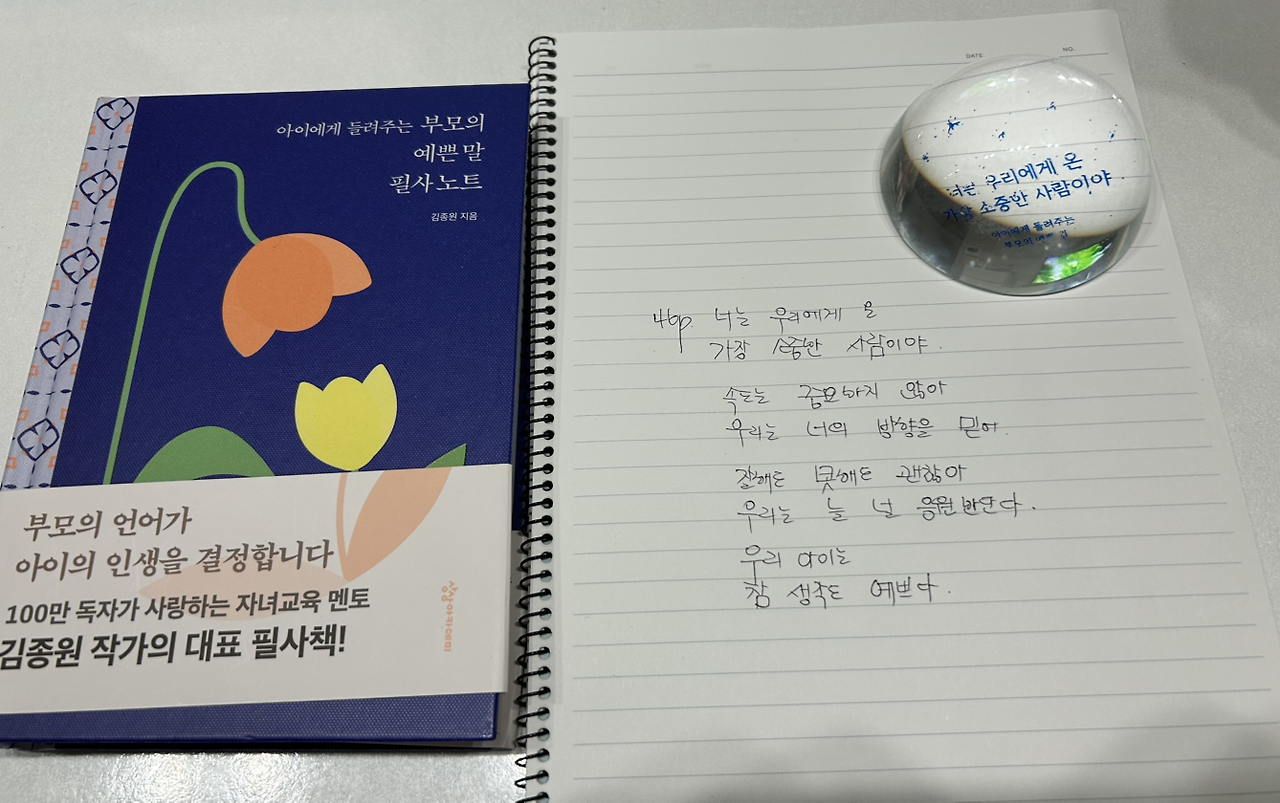 아이에게 들려주는 부모의
예쁜 말
필사 노트
김종원 지음
부모의 언어가
아이의 인생을 결정합니다
100만 독자가 사랑하는 자녀교육 멘토
김종원 작가의 대표 필사책!
상상아카데미
DATE
NO.
너는 우리에게 온
가장 소중한 사람이야
아이에게 들려주는
부모의 예쁜 말
46p. 너는 우리에게 온
가장 소중한 사람이야.
속도는 중요하지 않아
우리는 너의 방향을 믿어.
잘해도 못해도 괜찮아
우리는 늘 널 응원한단다.
우리 아이는
참 생각도 예쁘다.